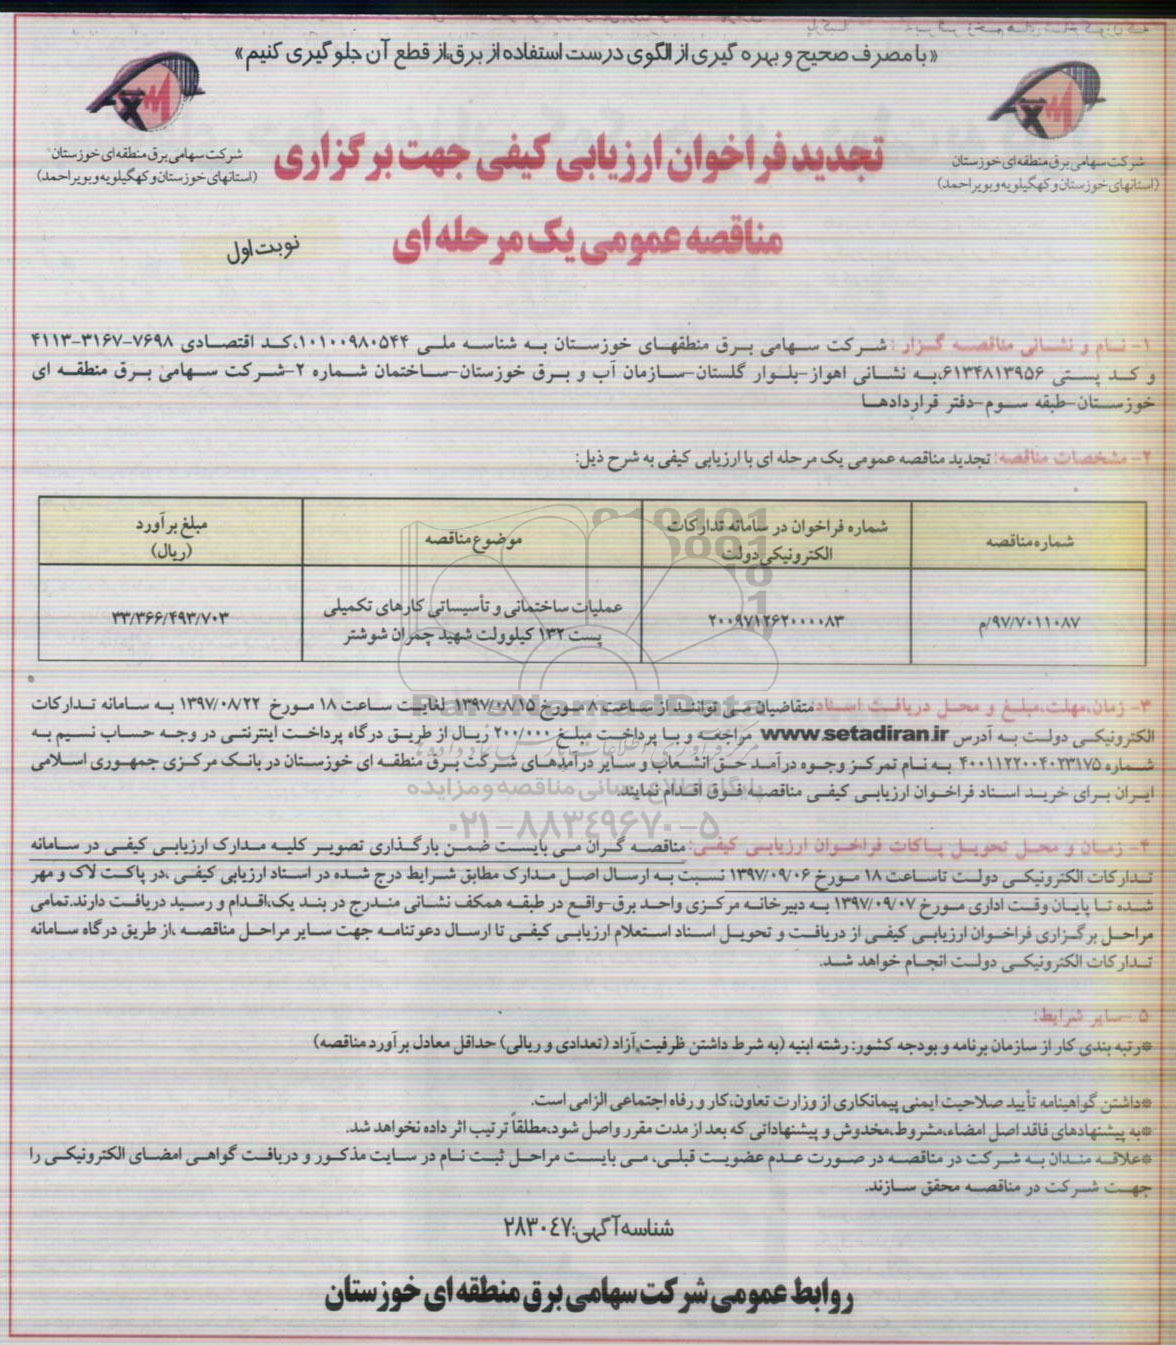 «با مصرف صحیح و بهره گیری از الگوی درست استفاده از برق،از قطع آن جلوگیری کنیم»
شرکت سهامی برق منطقه‌ای خوزستان
(استانهای خوزستان و کهگیلویه و بویراحمد)
شرکت سهامی برق منطقه‌ای خوزستان
(استانهای خوزستان و کهگیلویه و بویراحمد)
تجدید فراخوان ارزیابی کیفی جهت برگزاری
مناقصه عمومی یک مرحله ای
نوبت اول
۱- نام و نشانی مناقصه گزار: شرکت سهامی برق منطقهای خوزستان به شناسه ملی ۱۰۱۰۰۹۸۰۵۴۴،کد اقتصادی ۷۶۹۸-۳۱۶۷-۴۱۱۳
و کد پستی ۶۱۳۴۸۱۳۹۵۶،به نشانی اهواز-بلوار گلستان-سازمان آب و برق خوزستان-ساختمان شماره ۲-شرکت سهامی برق منطقه ای
خوزستان-طبقه سوم-دفتر قراردادها
۲- مشخصات مناقصه: تجدید مناقصه عمومی یک مرحله ای با ارزیابی کیفی به شرح ذیل:
شماره مناقصه
شماره فراخوان در سامانه تدارکات
الکترونیکی دولت
موضوع مناقصه
مبلغ برآورد
(ریال)
۹۷/۷۰۱۱۰۸۷/م
۲۰۰۹۷۱۲۶۲۰۰۰۰۸۳
عملیات ساختمانی و تأسیساتی کارهای تکمیلی
پست ۱۳۲ کیلوولت شهید چمران شوشتر
۳۳/۳۶۶/۴۹۳/۷۰۳
ParsNamadData
۳- زمان،مهلت،مبلغ و محل دریافت اسناد: متقاضیان می توانند از ساعت ۸ مورخ ۱۳۹۷/۰۸/۱۵ لغایت ساعت ۱۸ مورخ ۱۳۹۷/۰۸/۲۲ به سامانه تدارکات
الکترونیکی دولت به آدرس www.setadiran.ir مراجعه و با پرداخت مبلغ ۲۰۰/۰۰۰ ریال از طریق درگاه پرداخت اینترنتی در وجه حساب نسیم به
شماره ۴۰۰۱۱۲۲۰۰۴۰۲۳۱۷۵ به نام تمرکز وجوه درآمد حق انشعاب و سایر درآمدهای شرکت برق منطقه ای خوزستان در بانک مرکزی جمهوری اسلامی
ایران برای خرید اسناد فراخوان ارزیابی کیفی مناقصه فوق اقدام نمایند.
پایگاه اطلاع رسانی مناقصه و مزایده
۰۲۱-۸۸۳۴۹۶۷۰-۵
۴- زمان و محل تحویل پاکات فراخوان ارزیابی کیفی: مناقصه گران می بایست ضمن بارگذاری تصویر کلیه مدارک ارزیابی کیفی در سامانه
تدارکات الکترونیکی دولت تاساعت ۱۸ مورخ ۱۳۹۷/۰۹/۰۶ نسبت به ارسال اصل مدارک مطابق شرایط درج شده در اسناد ارزیابی کیفی ،در پاکت لاک و مهر
شده تا پایان وقت اداری مورخ ۱۳۹۷/۰۹/۰۷ به دبیرخانه مرکزی واحد برق-واقع در طبقه همکف نشانی مندرج در بند یک،اقدام و رسید دریافت دارند.تمامی
مراحل برگزاری فراخوان ارزیابی کیفی از دریافت و تحویل اسناد استعلام ارزیابی کیفی تا ارسال دعوتنامه جهت سایر مراحل مناقصه ،از طریق درگاه سامانه
تدارکات الکترونیکی دولت انجام خواهد شد.
۵ -سایر شرایط:
*رتبه بندی کار از سازمان برنامه و بودجه کشور: رشته ابنیه (به شرط داشتن ظرفیت آزاد (تعدادی و ریالی) حداقل معادل برآورد مناقصه)
*داشتن گواهینامه تأیید صلاحیت ایمنی پیمانکاری از وزارت تعاون،کار و رفاه اجتماعی الزامی است.
*به پیشنهادهای فاقد اصل امضاء،مشروط،مخدوش و پیشنهاداتی که بعد از مدت مقرر واصل شود،مطلقاً ترتیب اثر داده نخواهد شد.
*علاقه مندان به شرکت در مناقصه در صورت عدم عضویت قبلی، می بایست مراحل ثبت نام در سایت مذکور و دریافت گواهی امضای الکترونیکی را
جهت شرکت در مناقصه محقق سازند.
شناسه آگهی:۲۸۳۰۴۷
روابط عمومی شرکت سهامی برق منطقه ای خوزستان